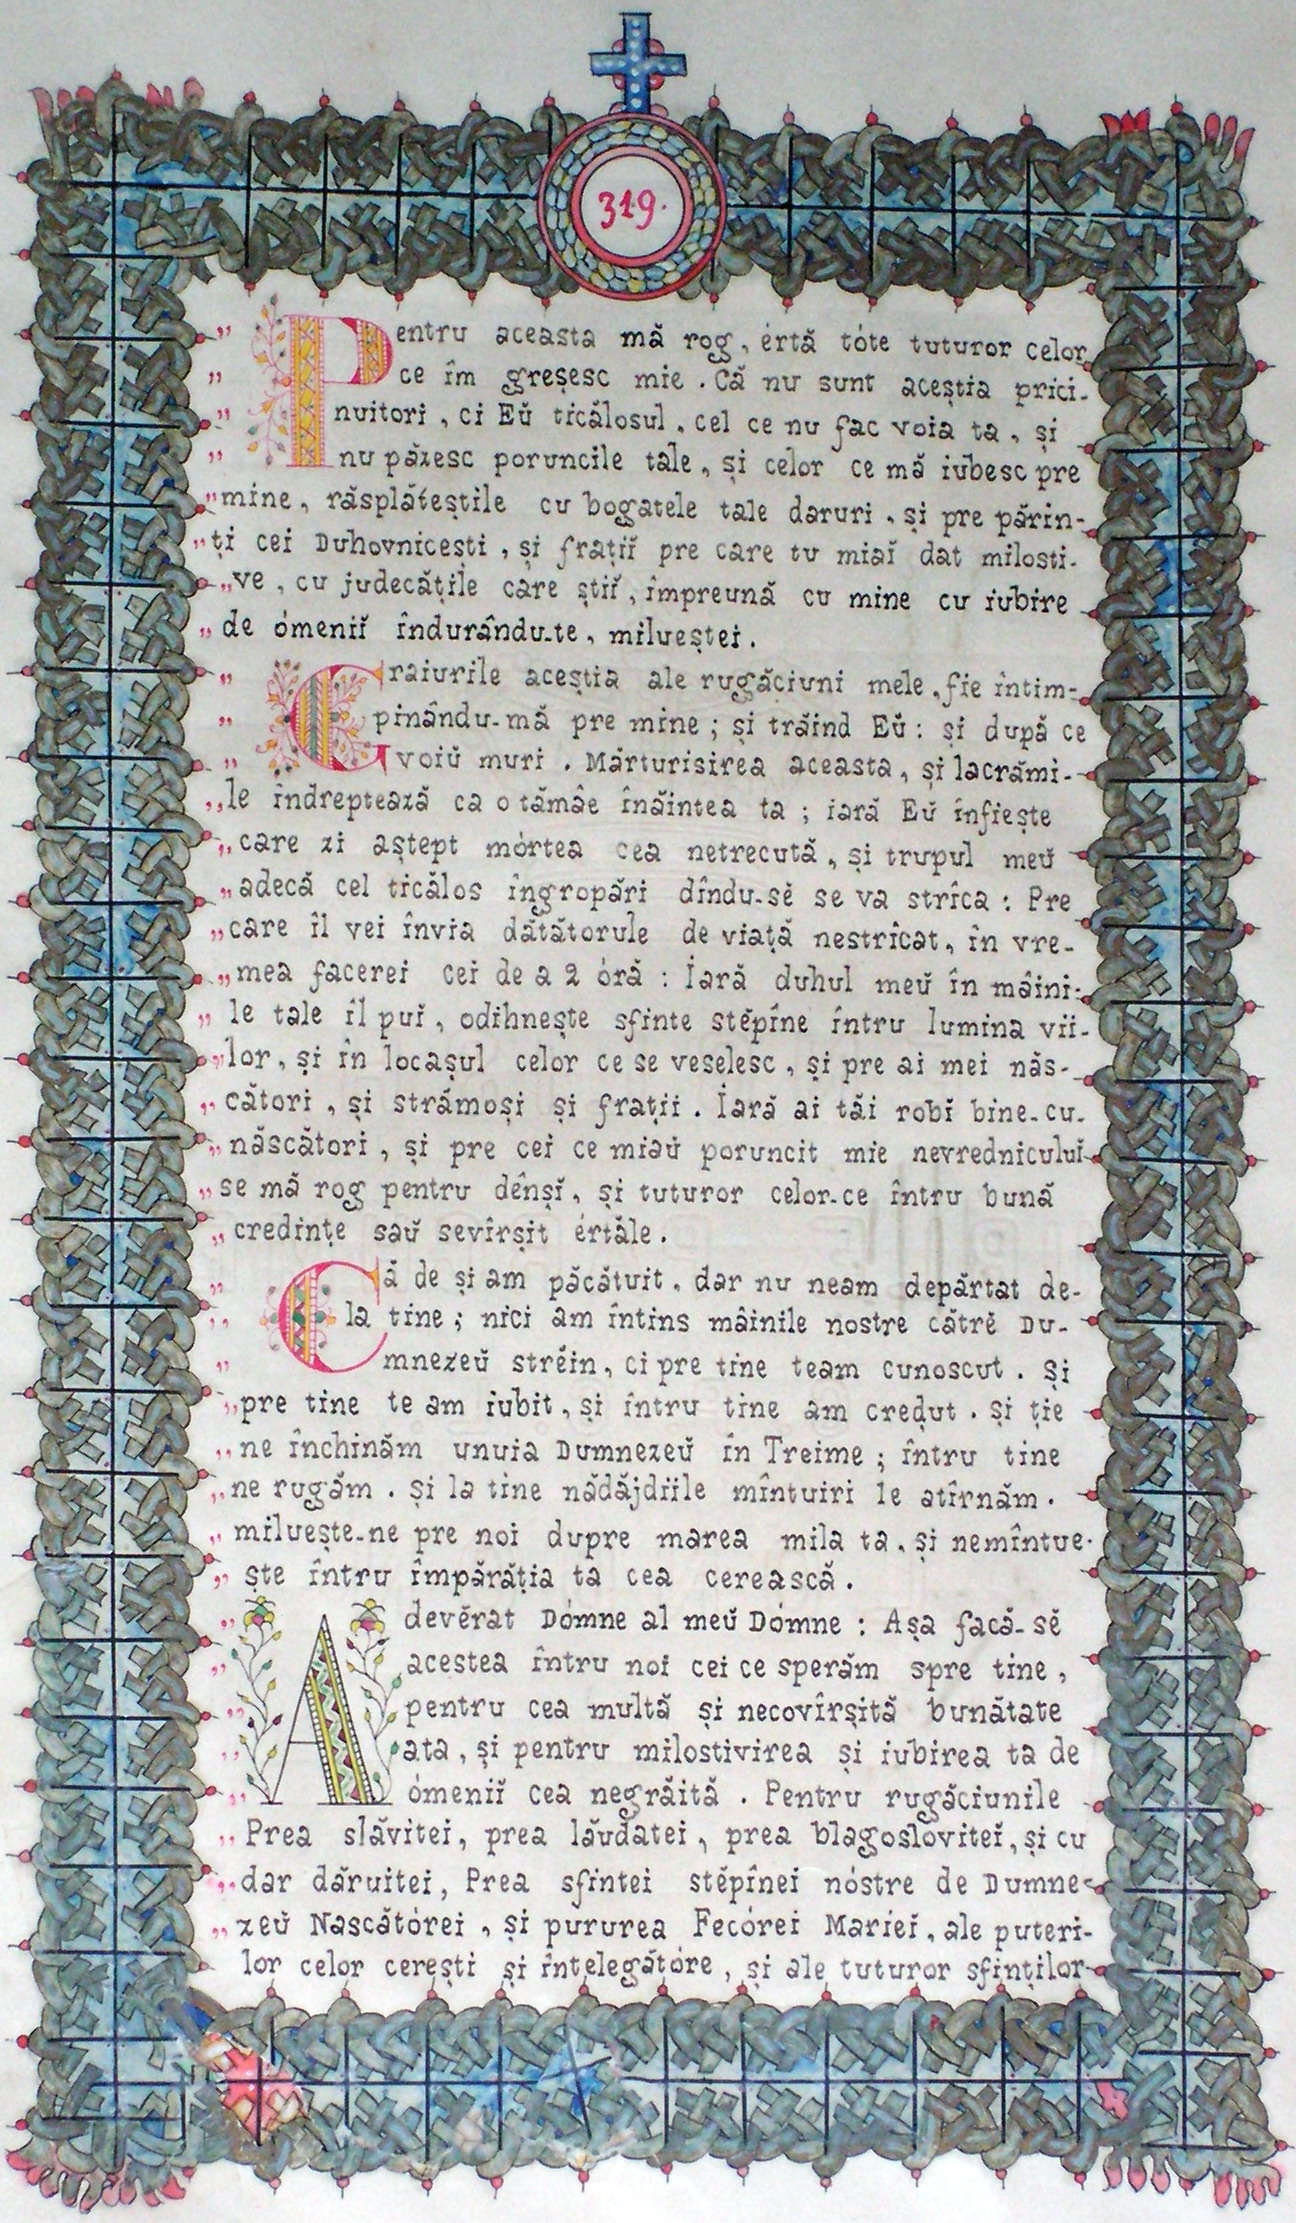 319.
„ Pentru aceasta mă rog, értă tóte tuturor celor
„ ce îm greșesc mie. Că nu sunt aceștia prici-
„ nuitori, ci Eŭ ticălosul, cel ce nu fac voia ta, și
„ nu păzesc poruncile tale, și celor ce mă iubesc pre
„ mine, răsplăteștile cu bogatele tale daruri, și pre părin-
„ ți cei Duhovnicești, și frațiĭ pre care tu miaĭ dat milosti-
„ ve, cu judecățile care știĭ, împreună cu mine cu iubire
„ de ómeniĭ îndurându-te, milueștei.
„ Graiurile aceștia ale rugăciuni mele, fie întim-
„ pinându-mă pre mine; și trăind Eŭ: și după ce
„ voiŭ muri. Mărturisirea aceasta, și lacrămi-
„ le îndreptează ca o tămâe înăintea ta; iară Eŭ înfiește
„ care zi aștept mórtea cea netrecută, și trupul meŭ
„ adecă cel ticălos îngropări dîndu-sĕ se va strîca: Pre
„ care îl vei învia dătătorule de viață nestrîcat, în vre-
„ mea facerei cei de a 2 óră: Iară duhul meŭ în mâini-
„ le tale îl puĭ, odihnește sfinte stĕpîne întru lumina vii-
„ lor, și în locașul celor ce se veselesc, și pre ai mei năs-
„ cători, și strămoși și frații. Iară ai tăi robĭ bine-cu-
„ născători, și pre cei ce miaŭ poruncit mie nevrednicului
„ se mă rog pentru dênșĭ, și tuturor celor-ce întru bună
„ credințe saŭ sevîrșit értăle.
„ Că de și am păcătuit, dar nu neam depărtat de-
„ la tine; nici am întins mâinile nostre cătrĕ Du-
„ mnezeŭ strĕin, ci pre tine team cunoscut. Și
„ pre tine te am iubit, și întru tine am creḍut. Și ție
„ ne închinăm unuia Dumnezeŭ în Treime; întru tine
„ ne rugăm. Și la tine nădăjdiile mîntuiri le atîrnăm.
„ miluește-ne pre noi dupre marea mila ta, și nemîntue-
„ ște întru împărăția ta cea cerească.
„ Adevĕrat Dómne al meŭ Dómne: Așa facă-sĕ
„ acestea întru noi cei ce sperăm spre tine,
„ pentru cea multă și necovîrșită bunătate
„ ata, și pentru milostivirea și iubirea ta de
„ ómeniĭ cea negrăită. Pentru rugăciunile
„ Prea slăvitei, prea lăudatei, prea blagosloviteĭ, și cu
„ dar dăruitei, Prea sfintei stĕpînei nóstre de Dumne-
„ zeŭ Nascătórei, și pururea Fecórei Marieĭ, ale puteri-
lor celor cerești și întelegătóre, și ale tuturor sfinților